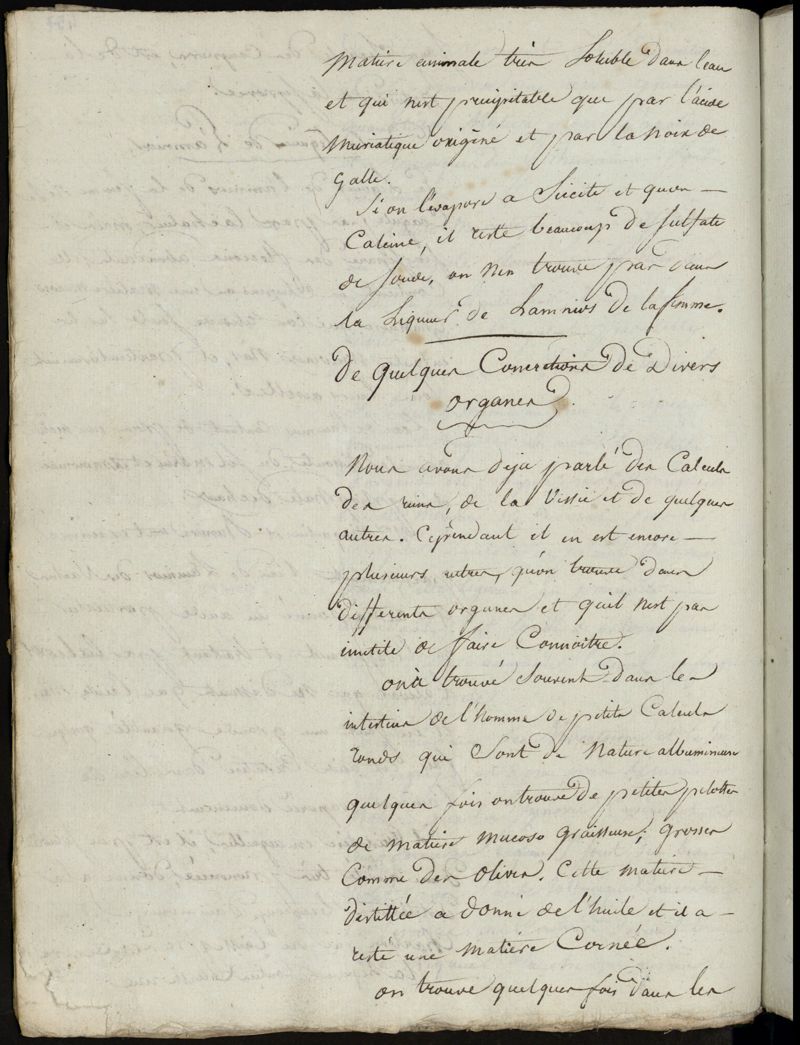 matiere animale très Soluble dans l'eau
et qui n'est précipitable que par l'acide
Muriatique oxigéné et par la noix de
galle.
Si on l'evapore a Siccité et qu'on
Calcine, il reste beaucoup de Sulfate
de Soude, on n'en trouve pas dans
la Liqueur de Lamnios de la femme.
De quelques Concretions de Divers
organes.
Nous avons deja parlé des Calculs
des reins, de la Vessie et de quelques
autres. Cependant il en est encore
plusieurs autres, qu'on trouve dans
differents organes et qu'il n'est pas
inutile de faire Connoître.
on a trouvé Souvent dans les
intestins de l'homme de petits Calculs
ronds qui Sont de Nature albumineuse
quelques fois on trouve de petites pelottes
de matiere mucoso graisseuse, grosses
Comme des olives. Cette matiere
distillée a donné de l'huile et il a
resté une matiere Cornée.
on trouve quelques fois dans les